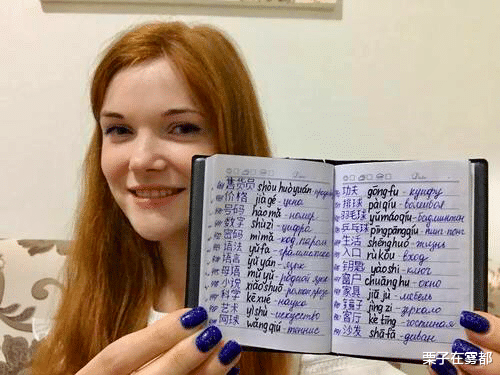 Date
售货员 shòu huò yuán - продавец
价格 jià gé - цена
号码 hào mǎ - номер
数字 shù zì - цифра
密码 mì mǎ - код, пароль
语法 yǔ fǎ - грамматика
语言 yǔ yán - язык
母语 mǔ yǔ - родной язык
小说 xiǎo shuō - роман
科学 kē xué - наука
艺术 yì shù - искусство
网球 wǎng qiú - теннис
Date
功夫 gōng fu - кунгфу
排球 pái qiú - волейбол
羽毛球 yǔ máo qiú - бадминтон
乒乓球 pīng pāng qiú - пинг-понг
生活 shēng huó - жизнь
入口 rù kǒu - вход
钥匙 yào shi - ключ
窗户 chuāng hu - окно
家具 jiā jù - мебель
镜子 jìng zi - зеркало
客厅 kè tīng - гостиная
沙发 shā fā - диван
栗子在雾都